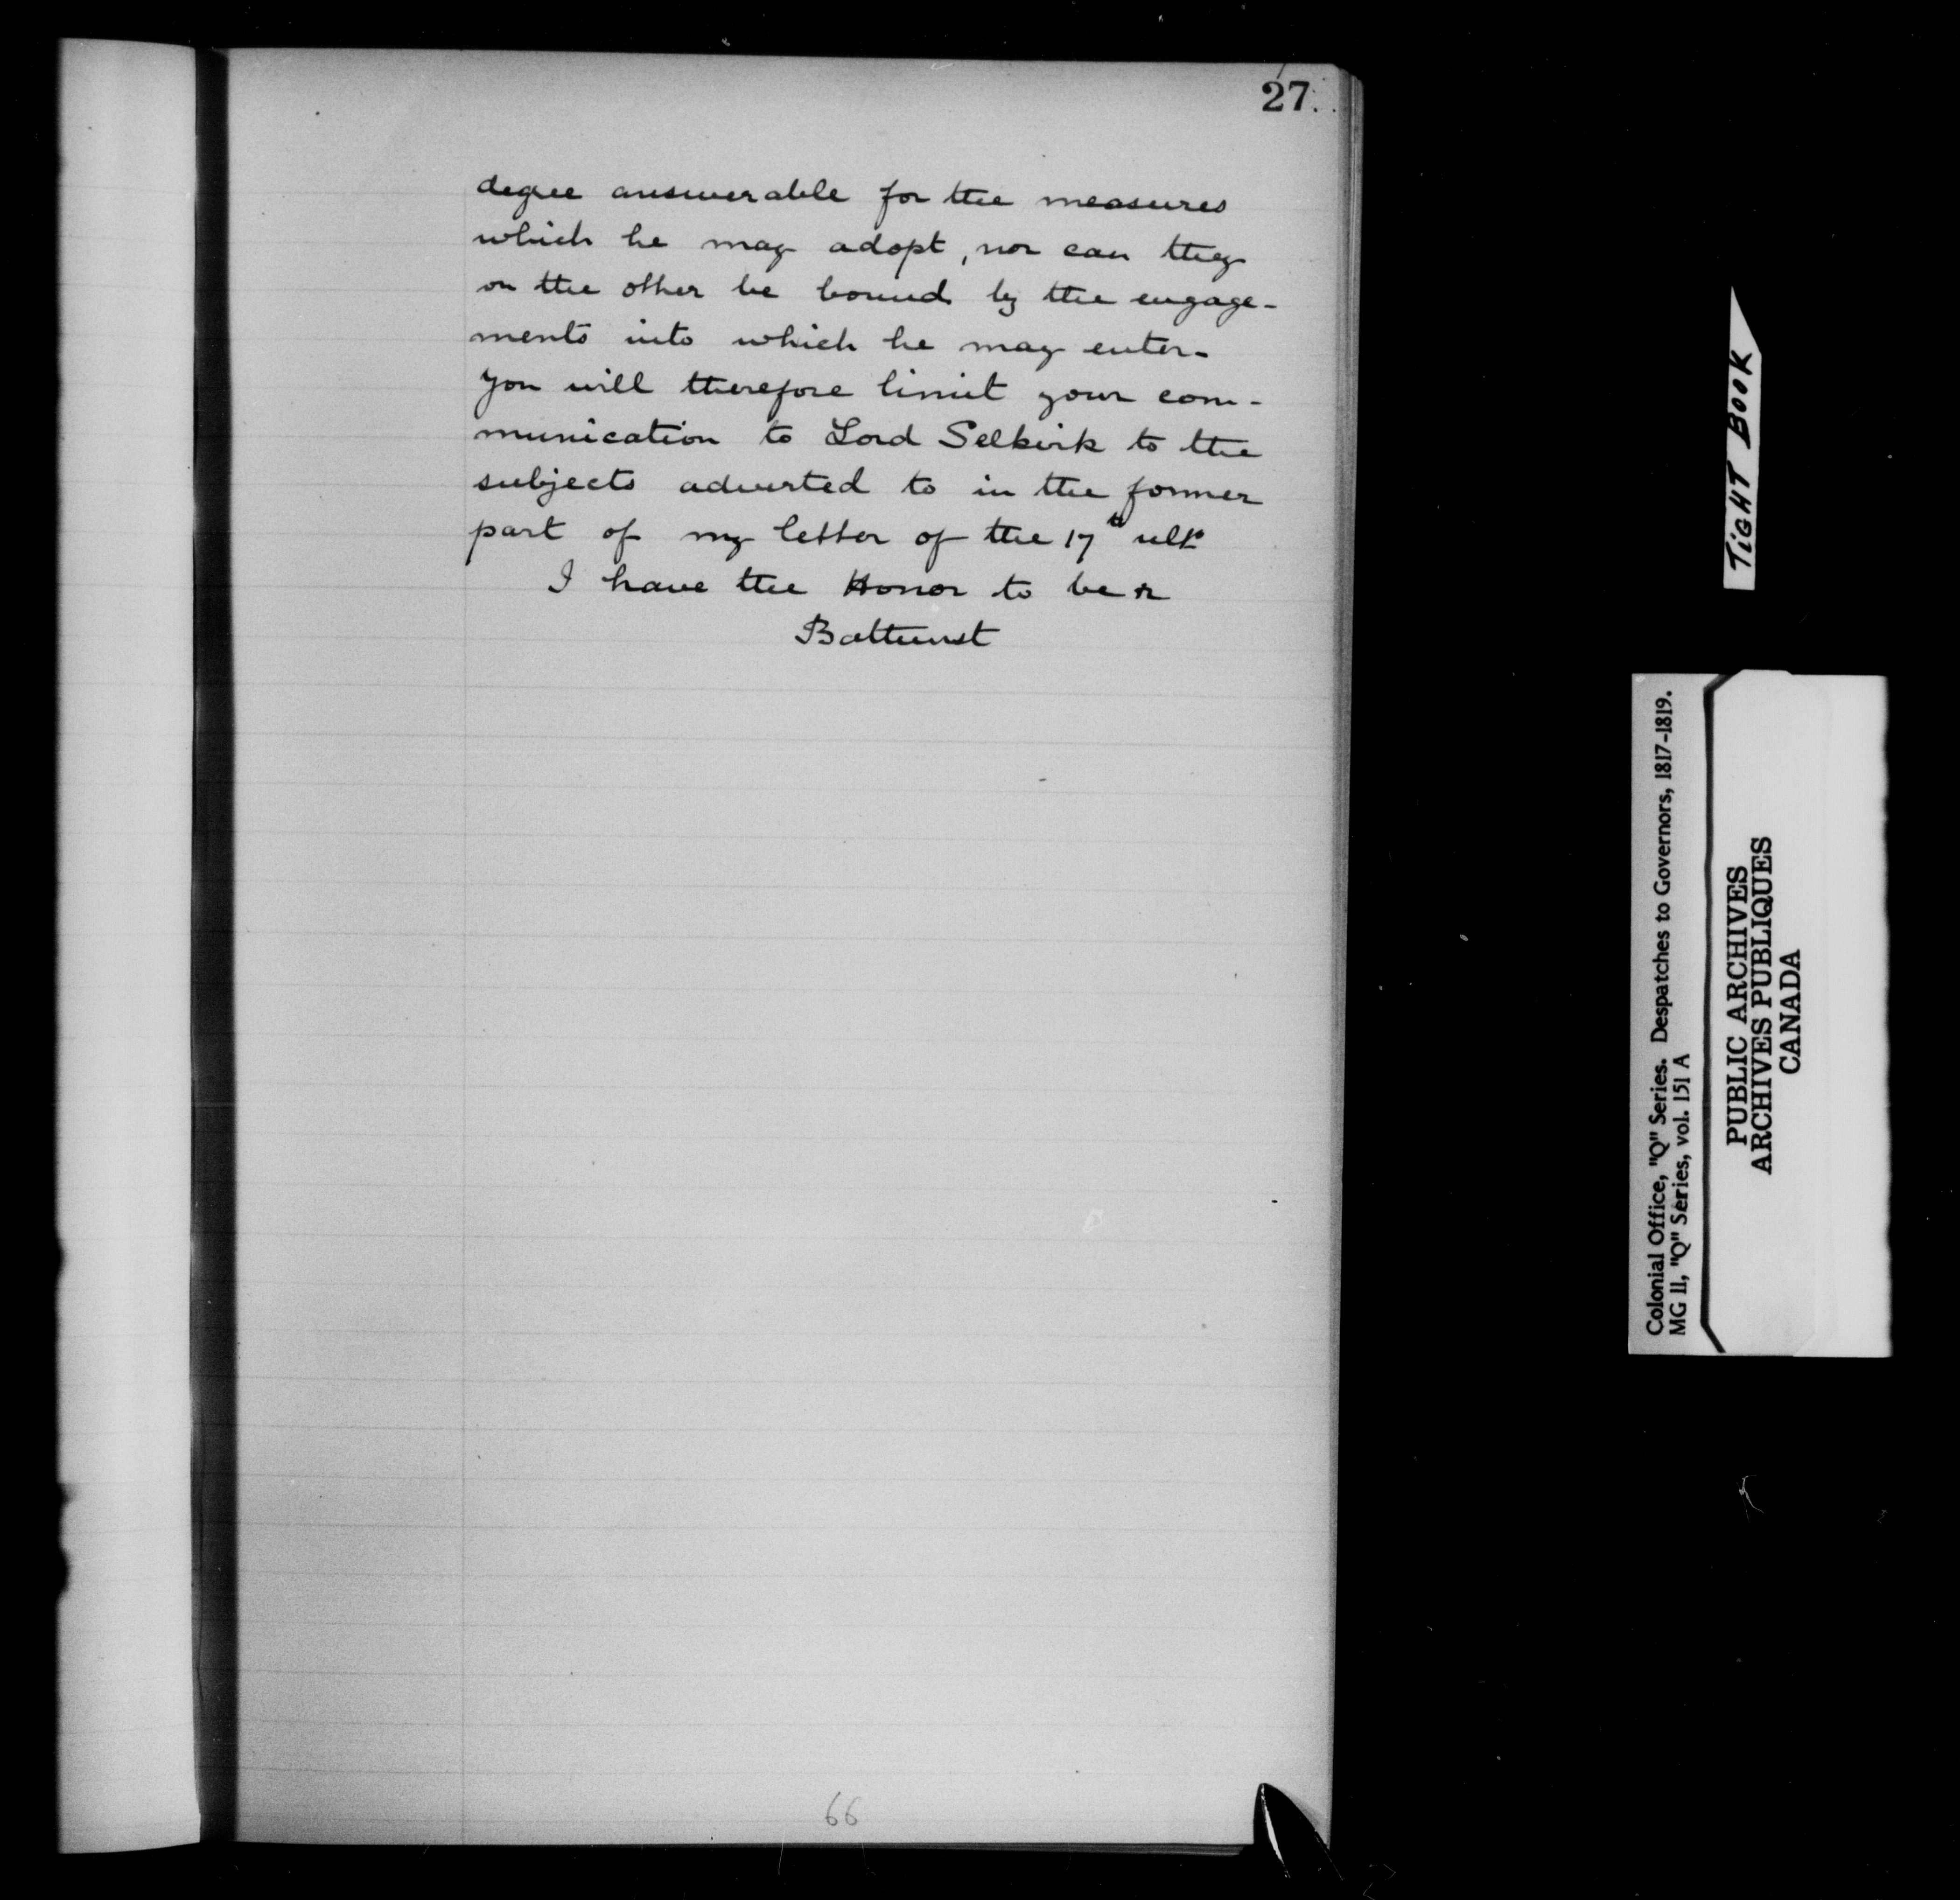 27.
degree answerable for the measures
which he may adopt, nor can they
on the other be bound by the engage-
ments into which he may enter.
You will therefore limit your com-
munication to Lord Selkirk to the
subjects adverted to in the former
part of my letter of the 17th ulto
I have the Honor to be &
Bathurst
66
TIGHT BOOK
Colonial Office, "Q" Series. Despatches to Governors, 1817-1819.
MG 11, "Q" Series, vol. 151 A
PUBLIC ARCHIVES
ARCHIVES PUBLIQUES
CANADA